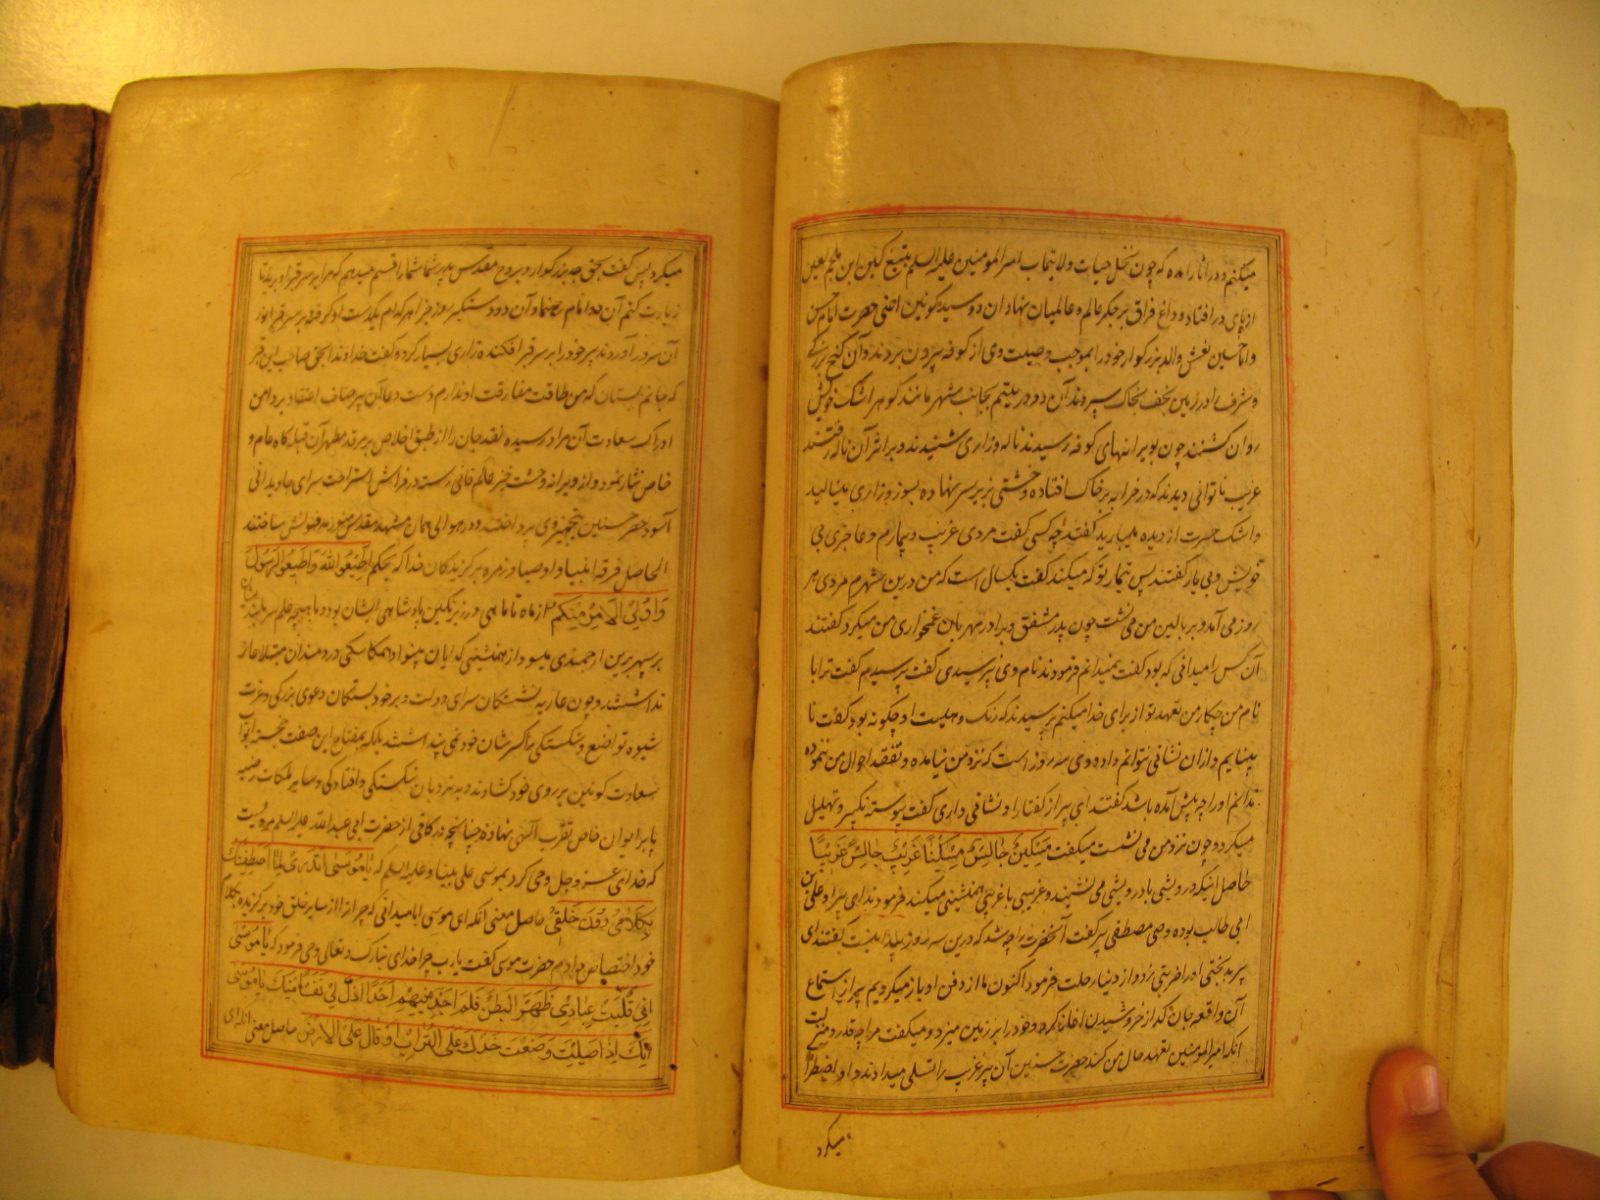 میکنم و در آثار آمده که چون نخل حیات ولایتمآب امیر المومنین علیه السلم بتیغ کین ابن ملجم لعین
از پای در افتاد و داغ فراق بر جگر عالم و عالمیان نهاد آن دو سید کونین اعنی حضرت امام حسن
و امام حسین نعش والد بزرگوار خود را بموجب وصیت وی از کوفه بیرون بردند و آن گنج بزرگی
و شرف را در زمین نجف بخاک سپردند آن دو در یتیم بجانب شهر مانند گوهر اشک خویش
روان گشتند چون بویرانهای کوفه رسیدند ناله و زاری شنیدند و بر اثر آن ناله رفتند
غریب ناتوانی دیدند که در خرابه بر خاک افتاده و خشتی زیر سر نهاده بسوز و زاری مینالید
و اشک حسرت از دیده میبارید گفتند چه کسی گفت مردی غریب و بیمارم و عاجزی بی
خویش و بی یار گفتند پس تیمار تو که میکند گفت یکسال است که من درین شهرم مردی هر
روز می آمد و بر بالین من می نشست چون پدر مشفق و برادر مهربان غمخواری من میکرد گفتند
آن کس را میدانی که بود گفت نمیدانم فرمودند نام وی پرسیدی گفت پرسیدم گفت ترا با
نام من چکار من تعهد تو از برای خدا میکنم پرسیدند که رنگ و هیئت او چگونه بود گفت نا
بینایم و ازان نشانی نتوانم داد و وی سه روز است که نزد من نیامده و تفقد احوال من ننموده
ندانم او را چه پیش آمده باشد گفتند ای پیر از گفتار او نشانی داری گفت پیوسته تکبیر و تهلیل
میکرد و چون نزد من می نشست میکفت مسکین جالس مسکینا غریب جالس غریبا
حاصل آنکه درویشی با درویشی می نشیند و غریبی با غریبی همنشینی میکند فرمودند ای پیر او علی بن
ابی طالب بوده وصی مصطفی پیر گفت آنحضرت را چه شد که درین سه روز پیدا نیست گفتند ای
پیر بدبختی او را ضربتی زد و از دنیا رحلت فرمود اکنون ما از دفن او باز میگردیم پیر از استماع
آن واقعه جان گداز خروشیدن آغاز کرد و خود را بر زمین میزد و میگفت مرا چه قدر و منزلت
آنکه امیر المومنین تعهد حال من کند حضرت حسنین آن پیر غریب را تسلی میدادند و او اضطراب
میکرد
میکرد پس گفت بحق جد بزرگوار و بروح مقدس پدر شما شما را قسم میدهم که مرا بر سر قبر او برید تا
زیارت کنم آن دو امام رهنما و آن دو دستگیر روز جزا هر کدام یکدست او گرفته بر سر قبر انور
آن سرور آوردند پیر خود را بر سر قبر افکنده زاری بسیار کرده گفت خداوندا بحق صاحب این قبر
که جانم بستان که من طاقت مفارقت او ندارم دست دعا آن پیر صاف اعتقاد بر دامن
ادراک سعادت آن مراد رسیده نقد جان را از طبق اخلاص بر مرقد مطهر آن قبله گاه عام و
خاص نثار نمود و از ویرانه وحشت خیز عالم فانی رسته در فراش استراحت سرای جاویدانی
آسود حضرت حسنین بتجهیز وی پرداختند و در حوالی همان مشهد مقدس منور مدفونش ساختند
الحاصل فرقه انبیا و اوصیا و زمره برگزیدگان خدا که بحکم اطیعوا الله و اطیعوا الرسول
و اولی الامر منکم از ماه تا ماهی در زیر نگین پادشاهی ایشان بوده و ماهیچه علم سربلندیشان
بر سپهر برین ارجمندی میسود از همنشینی گدایان بینوا و همکاسگی دردمندان مبتلا عار
نداشتند و چون عاریه نشستگان سرای دولت و بر خود بستگان دعوی بزرگی و عزت
شیوه تواضع و شکستگی را کسر شان خود نمی پنداشتند بلکه بمفتاح این صفت خجسته ابواب
سعادت کونین بر روی خود گشادند و به نردبان شکستگی و افتادگی و سایر ملکات رضیه
پا بر ایوان خاص تقرب الهی نهادند چنانچه در کافی از حضرت ابی عبدالله علیه السلم مرویست
که خدای عز و جل وحی کرد بموسی علی نبینا و علیه السلم که یا موسی اتدری لما اصطفیتک
بکلامی دون خلقی حاصل معنی آنکه ای موسی آیا میدانی که چرا ترا از سایر خلق خود برگزیده بکلام
خود اختصاص دادم حضرت موسی گفت یا رب چرا خدای تبارک و تعالی وحی فرمود که یا موسی
انی قلبت عبادی ظهرا لبطن فلم اجد فیهم احدا اذل لی نفسا منک یا موسی
انک اذا صلیت وضعت خدک علی التراب او قال علی الارض حاصل معنی آنکه ای